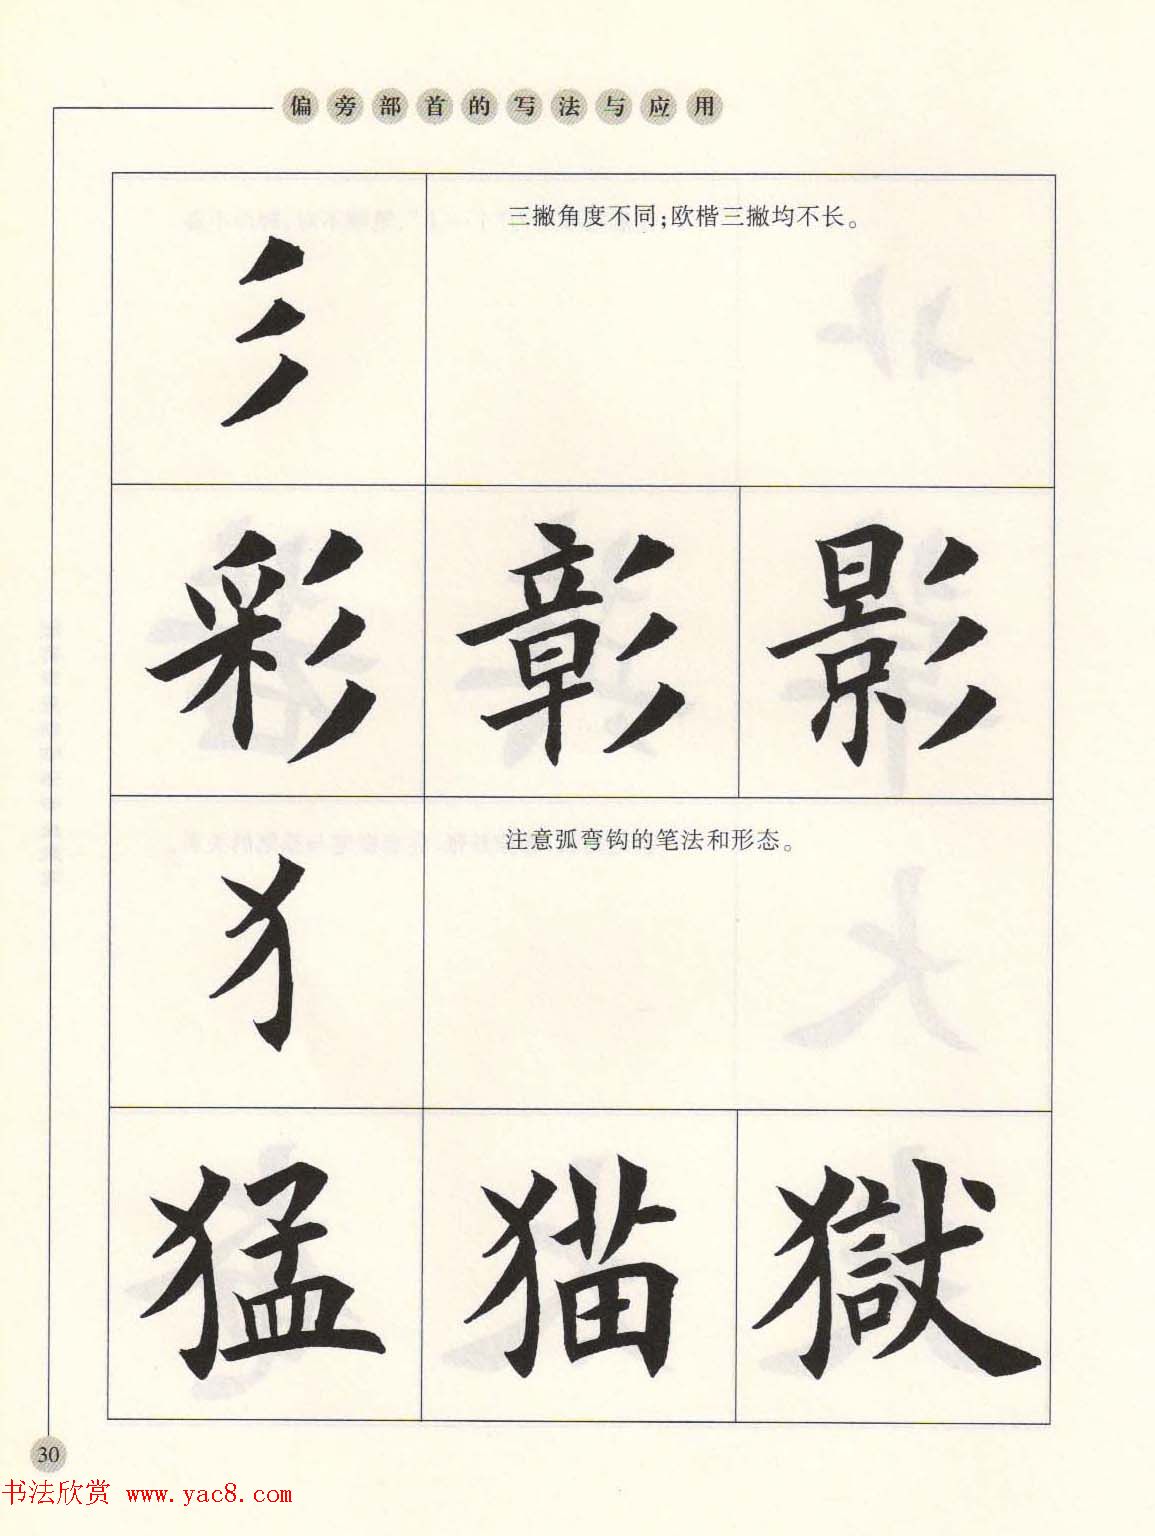 偏旁部首的写法与应用
彡
三撇角度不同；欧楷三撇均不长。
彩 彰 影
犭
注意弧弯钩的笔法和形态。
猛 猫 獄
30
书法欣赏 www.yac8.com